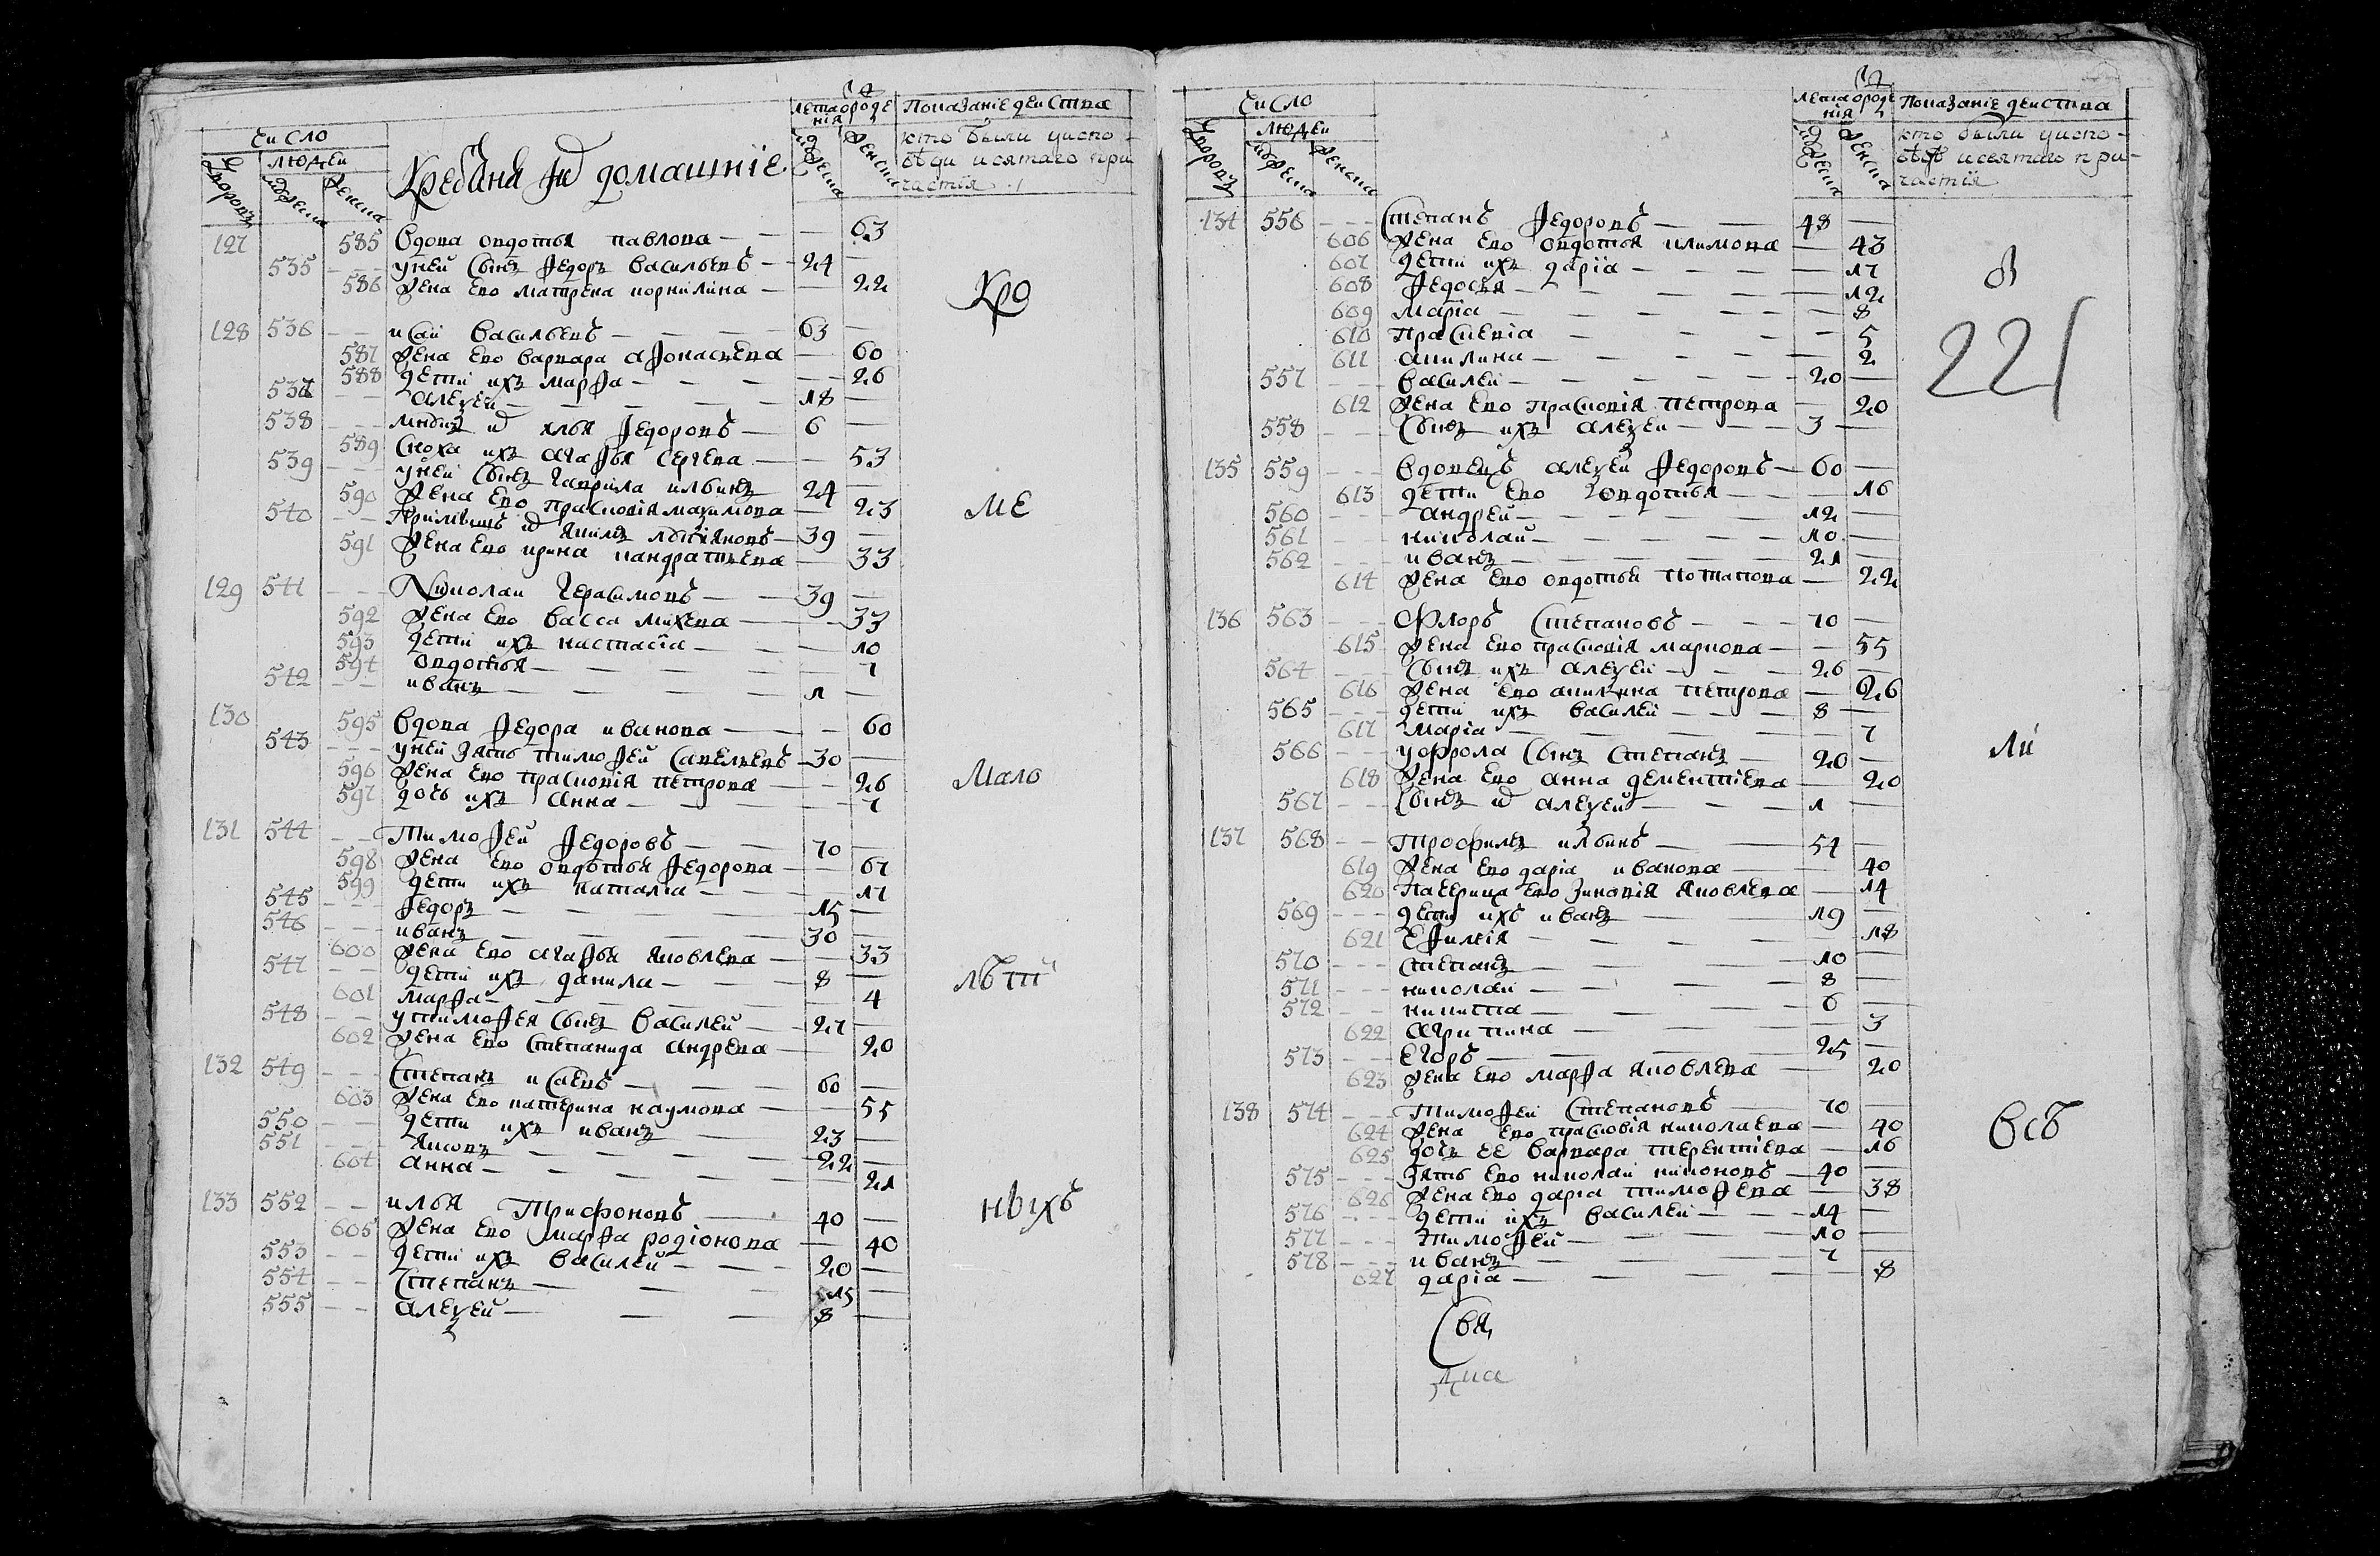 Число
Дворовъ
людей
Мужеска
Женска
Крестьяня и домашніе
лета о рожде
нія
Мужеска
Женска
Показаніе действа
кто были у испо-
веди и святаго при
частія
127 585 Вдова овдотья павлова — 63
535 у ней сынъ Ѳедоръ Васильевъ — 24
586 Жена ево матрена корнилина — 22
128 536 исаи Васильевъ — 63
587 Жена ево варвара аѲонасьева — 60
588 дети ихъ марѲа — 26
537 алеѯеи — 18
538 илья Ѳедоровъ — 6
589 Сноха ихъ агаѲья Сергева — 53
539 у ней Сынъ гаврила ильинъ 24
590 Жена ево прасковія маѯимова — 23
540 39
591 Жена ево ирина кандратьева — 33
129 541 Николаи герасимовъ — 39
592 Жена ево васса михева — 33
593 дети ихъ настасіа — 10
594 овдотья — 7
542 иванъ — 1
130 595 Вдова Ѳедора иванова — 60
543 у ней зять тимоѲей Савельевъ — 30
596 Жена ево прасковія петрова — 26
597 дочь ихъ анна — 7
131 544 ТимоѲей Ѳедоровъ — 70
598 Жена ево овдотья Ѳедорова — 67
599 дети ихъ наталіа — 17
545 Ѳедоръ — 15
546 иванъ — 30
600 Жена ево агаѲья яковлева — 33
547 дети ихъ данила — 8
601 марѲа — 4
548 у тимоѲея сынъ Василей — 27
602 Жена ево Степанида андрева — 20
132 549 Степанъ исаевъ — 60
603 Жена ево катерина наумова — 55
550 дети ихъ иванъ — 23
551 яковъ — 22
604 анна — 21
133 552 илья Трифоновъ — 40
605 Жена ево марѲа родіонова — 40
553 дети ихъ Василей — 20
554 Степанъ — 15
555 алеѯей — 8
Кро
ме
мало
лѣт
ныхъ
Число
Дворовъ
людей
Мужеска
Женска
лета о рожде
нія
Мужеска
Женска
Показаніе действа
кто были у испо-
веди и святаго при-
частія
134 556 Степанъ Ѳедоровъ — 48
606 Жена ево овдотья климова — 43
607 дети ихъ даріа — 17
608 Ѳедосья — 12
609 маріа — 8
610 Прасковіа — 5
611 акилина — 2
557 Василей — 20
612 Жена ево прасковія петрова — 20
558 Сынъ ихъ алеѯей — 3
135 559 Вдовецъ алеѯей Ѳедоровъ — 60
613 дети ево овдотья — 16
560 андрей — 12
561 николай — 10
562 иванъ — 21
614 Жена ево овдотья потапова — 22
136 563 Флоръ Степановъ — 70
615 Жена ево прасковія маркова — 55
564 Сынъ ихъ алеѯей — 26
616 Жена ево акилина петрова — 26
565 дети ихъ василей — 8
617 маріа — 7
566 у фрола Сынъ Степанъ — 20
618 Жена ево анна дементіева — 20
567 Сынъ их алеѯей — 1
137 568 Трофимъ ильинъ — 54
619 Жена ево даріа иванова — 40
620 Падчерица ево зиновія яковлева — 14
569 дети ихъ иванъ — 19
621 ЕѲимія — 18
570 степанъ — 10
571 николай — 8
572 никита — 6
622 агрипина — 3
573 Егоръ — 25
623 Жена ево марѲа яковлева — 20
138 574 ТимоѲей Степановъ — 70
624 Жена ево прасковія николаева — 40
625 дочь ее варвара терентіева — 16
575 Зять ево николай никоновъ — 40
626 Жена ево даріа тимоѲева — 38
576 дети ихъ василей — 14
577 тимоѲей — 10
578 иванъ — 7
627 даріа — 8
221
ли
всѣ
Свя